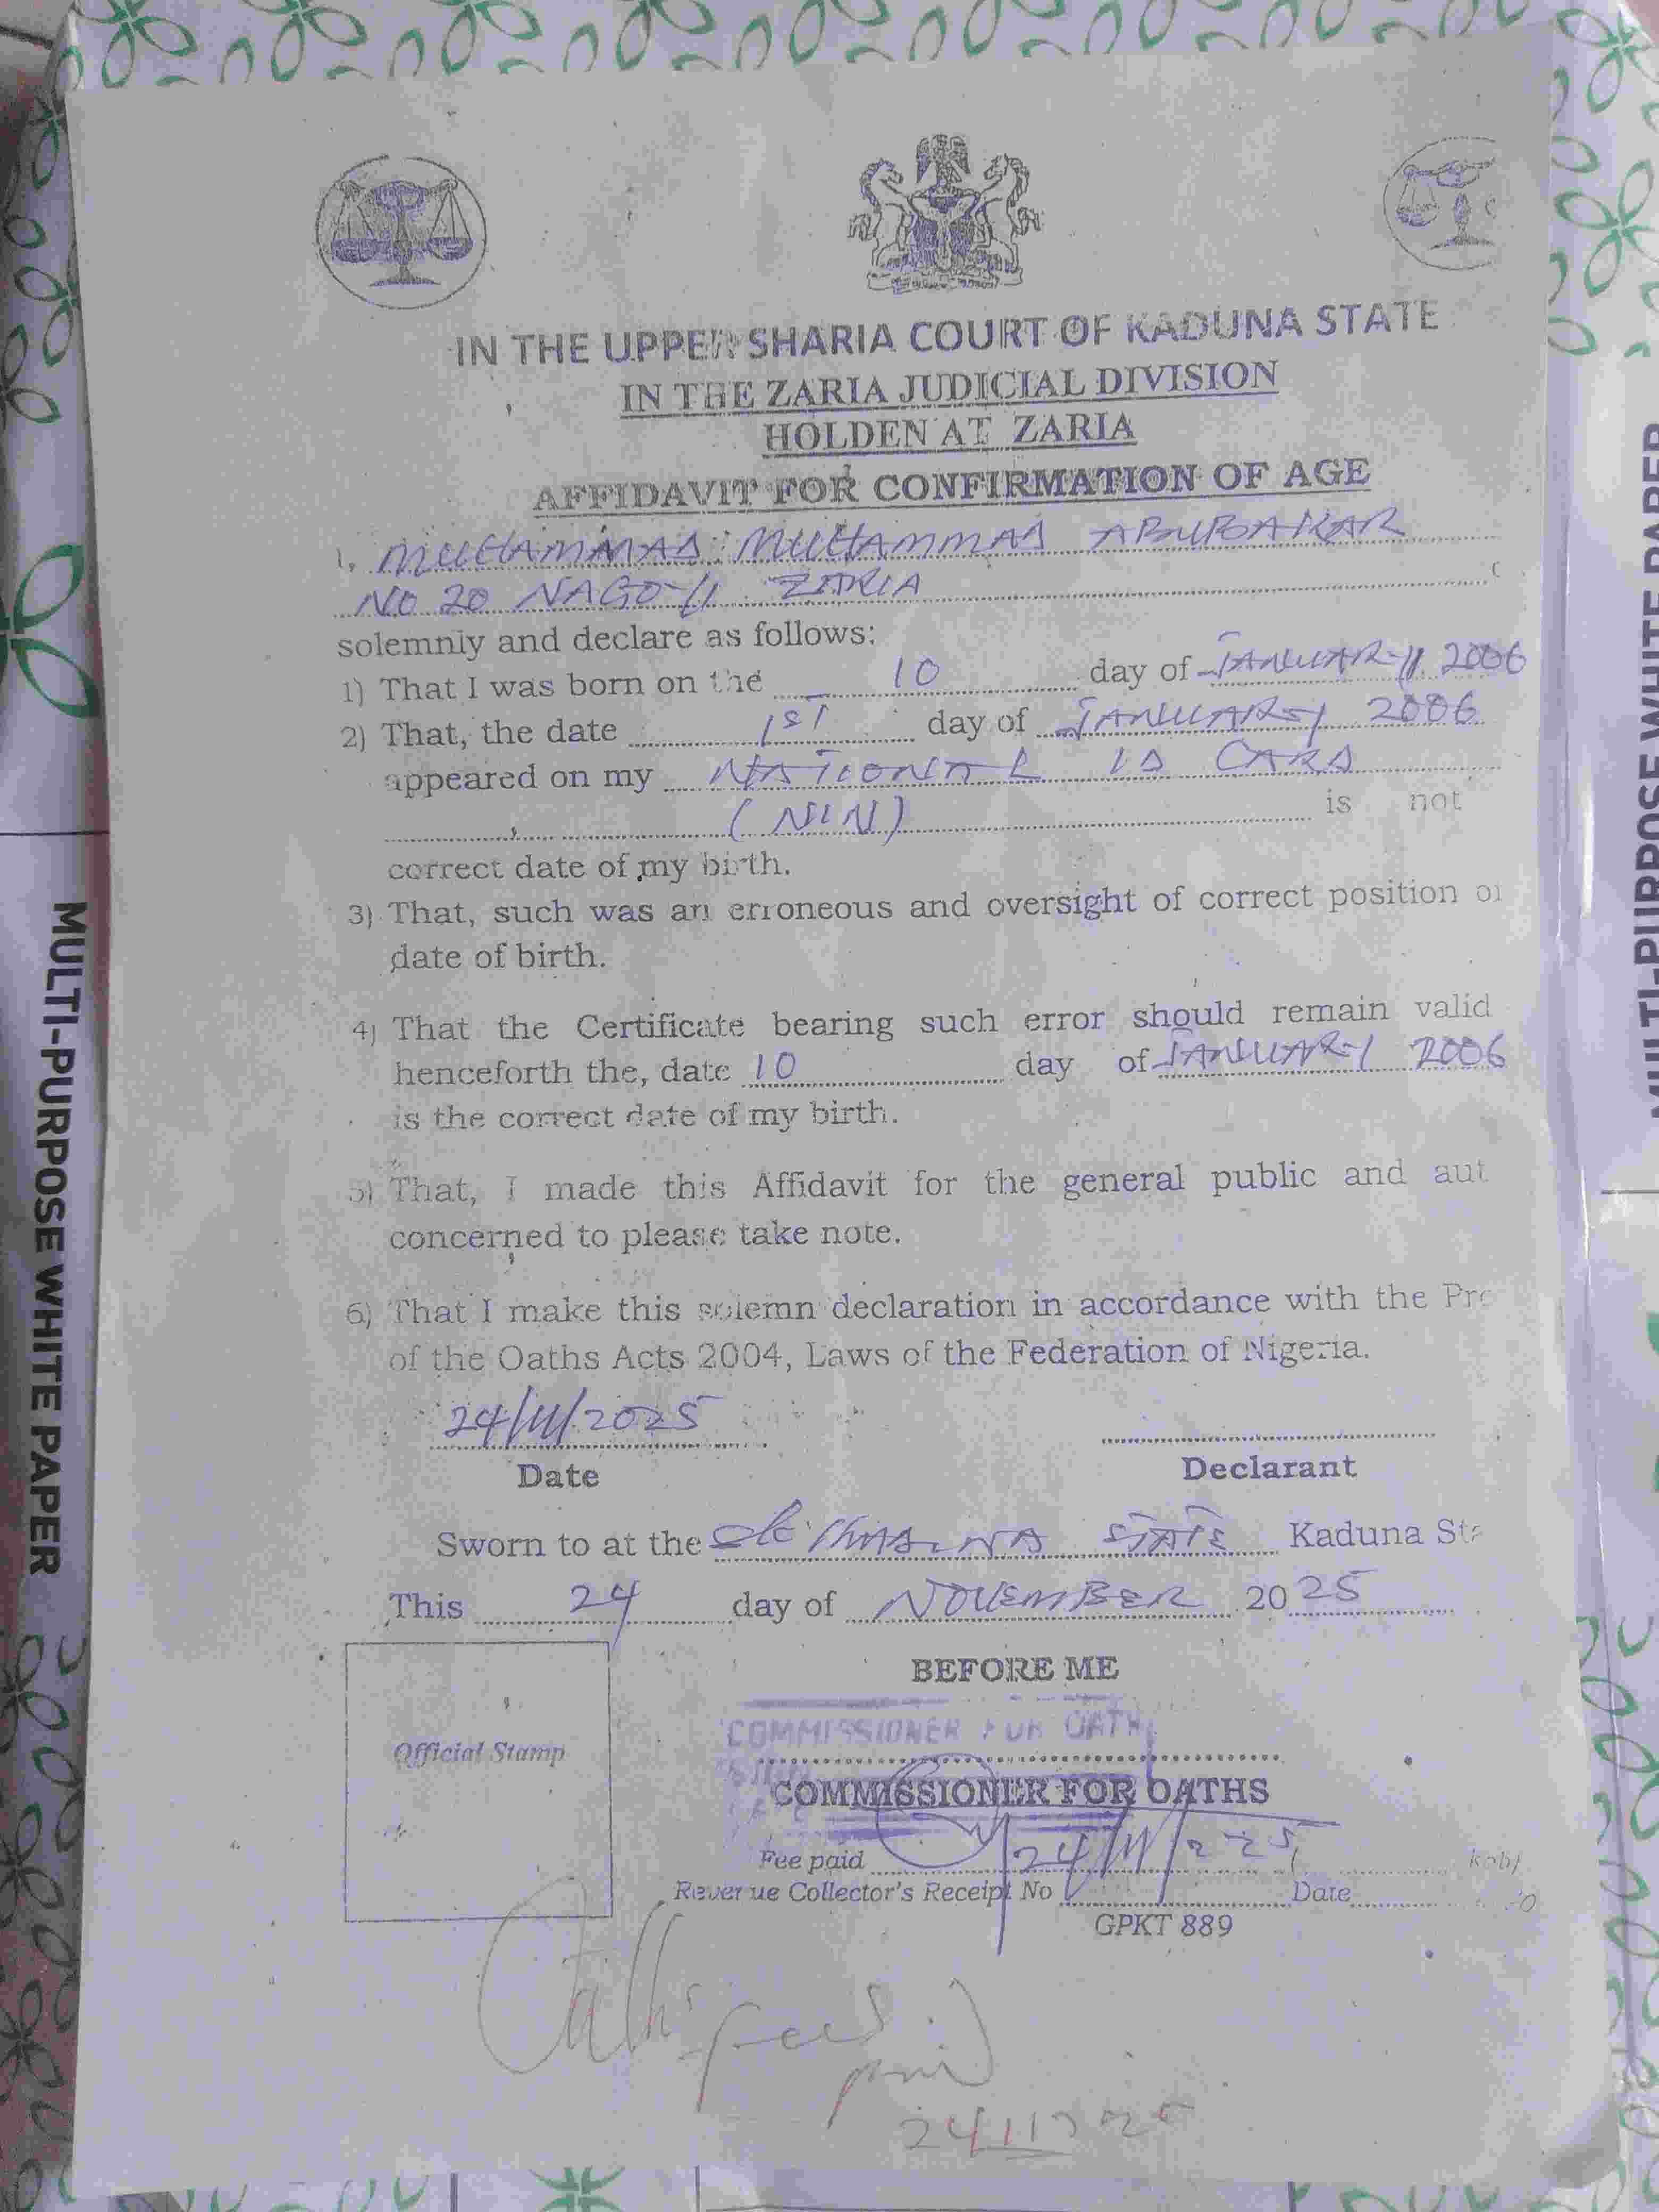 IN THE UPPER SHARIA COURT OF KADUNA STATE
IN THE ZARIA JUDICIAL DIVISION
HOLDEN AT ZARIA
AFFIDAVIT FOR CONFIRMATION OF AGE
I, MUHAMMAD MUHAMMAD ABUBAKAR
NO 20 NAGOYI ZARIA
solemnly and declare as follows:
1) That I was born on the 10 day of JANUARY 2006
2) That, the date 1ST day of JANUARY 2006
appeared on my NATIONAL ID CARD
(NIN) is not
correct date of my birth.
3) That, such was an erroneous and oversight of correct position of
date of birth.
4) That the Certificate bearing such error should remain valid
henceforth the, date 10 day of JANUARY 2006
is the correct date of my birth.
5) That, I made this Affidavit for the general public and aut
concerned to please take note.
6) That I make this solemn declaration in accordance with the Pro
of the Oaths Acts 2004, Laws of the Federation of Nigeria.
24/11/2025
Date
Declarant
Sworn to at the STATE Kaduna Sta
This 24 day of NOVEMBER 2025
BEFORE ME
Official Stamp
COMMISSIONER FOR OATH
COMMISSIONER FOR OATHS
24/11/225
Fee paid kob
Revenue Collector's Receipt No Date
GPKT 889
Oath fees
paid
MULTI-PURPOSE WHITE PAPER
MULTI-PURPOSE WHITE PAPER